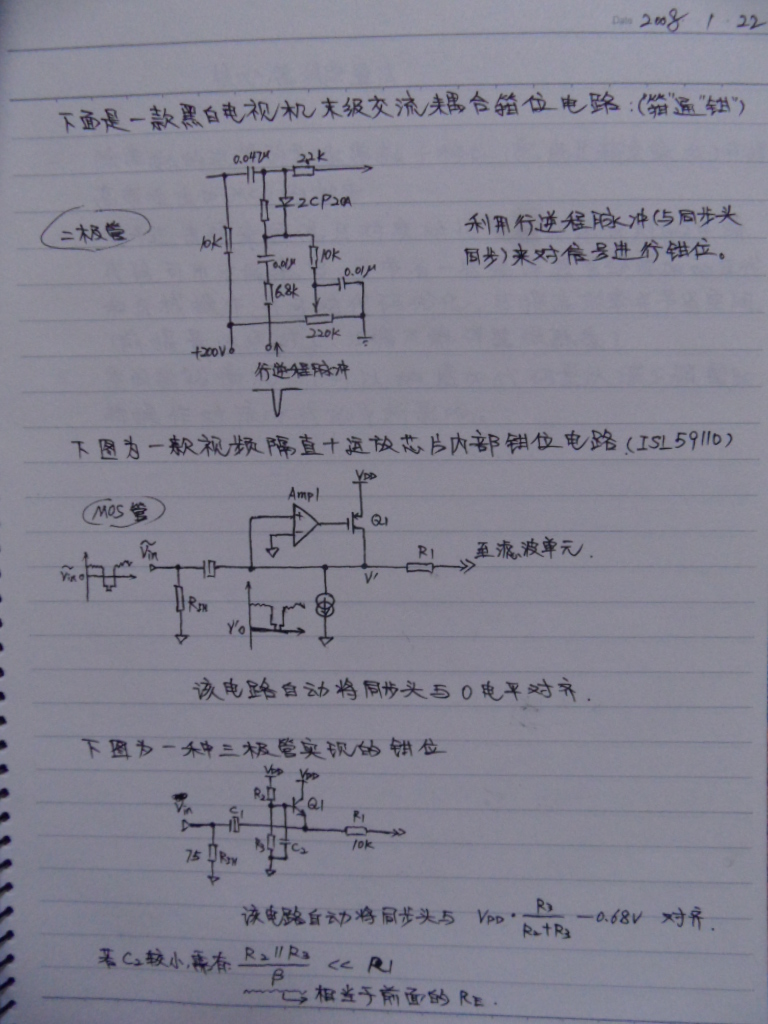 Date 2008 1 22
下面是一款黑白电视机末级交流耦合箝位电路:("箝"通"钳")
0.047μ 22K
2CP20A
二极管
10K
0.01μ 10K
0.01μ
6.8K
220K
+200V
行逆程脉冲
利用行逆程脉冲(与同步头
同步)来对信号进行钳位。
下图为一款视频隔直+运放芯片内部钳位电路(ISL59110)
MOS管
VDD
Amp1
Q1
Vin
Vin 0
RIN
V'
R1
至滤波单元.
V'0
该电路自动将同步头与0电平对齐.
下图为一种三极管实现的钳位
VDD VDD
R2 Q1
Vin C1
R1
10K
75 RIN
R3 C2
该电路自动将同步头与 VDD·R3/(R2+R3) -0.68V 对齐.
若C2较小,需有 R2//R3/β << R1
相当于前面的RE.